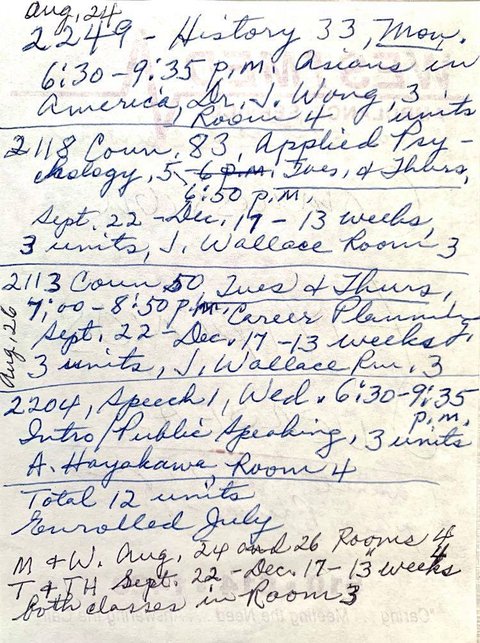 Aug, 24
2249 - History 33, Mon.
6:30-9:35 p.m. Asians in
America, Dr. J. Wong, 3
Room 4 units
2118 Coun. 83, Applied Psy-
chology, 5-6 p.m. Tues, & Thurs,
6:50 p.m.
Sept. 22 - Dec. 17 - 13 weeks,
3 units, J. Wallace Room 3
2113 Coun 50, Tues & Thurs,
7:00 - 8:50 p.m. Career Planning,
Aug, 26
Sept. 22 - Dec. 17 - 13 weeks
3 units, J. Wallace Rm. 3
2204, Speech 1, Wed. 6:30-9:35
p.m.
Intro/Public Speaking, 3 units
A. Hayakawa, Room 4
Total 12 units
Enrolled July
M & W. Aug, 24 and 26 Rooms 4
" 4
T & TH Sept. 22 - Dec. 17 - 13 weeks
both classes in Room 3